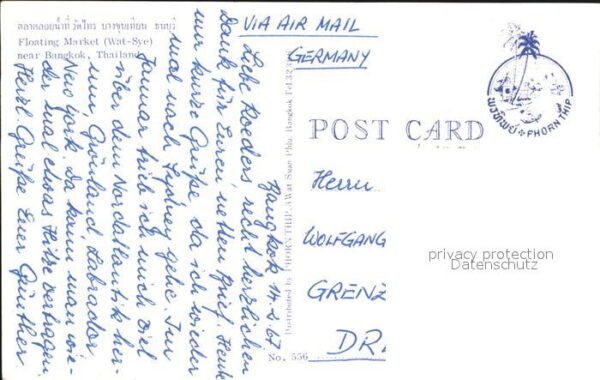 ตลาดลอยน้ำที่ วัดไทร บางขุนเทียน ธนบุรี
Floating Market (Wat-Sye)
near Bangkok, Thailand
VIA AIR MAIL
GERMANY
POST CARD
พรทิพย์ PHORN THIP
Herrn
WOLFGANG
GRENZ
DR
privacy protection
Datenschutz
Distributed by PHORNTHIP, Wat Suan Phlu, Bangkok Tel.
No. 556
Bangkok 14.2.67
Liebe Roeders, recht herzlichen
Dank für Euren netten Brief. Heute
nur kurze Grüße, da ich wieder
mal nach Sydney gehe. Im
Januar trieb ich mich viel
über dem Nordatlantik her-
um, Grönland Labrador
New York. Da kann man wie-
der mal etwas Hitze vertragen
Herzl. Grüße Euer Günther.